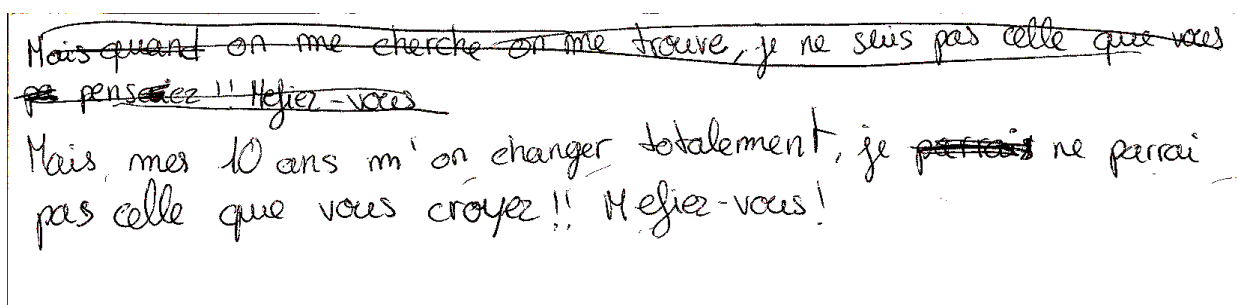 Mais quand on me cherche on me trouve, je ne suis pas celle que vous
pe pensiez !! Mefiez-vous
Mais mes 10 ans m'on changer totalement, je parrais ne parrai
pas celle que vous croyez !! Mefiez-vous !